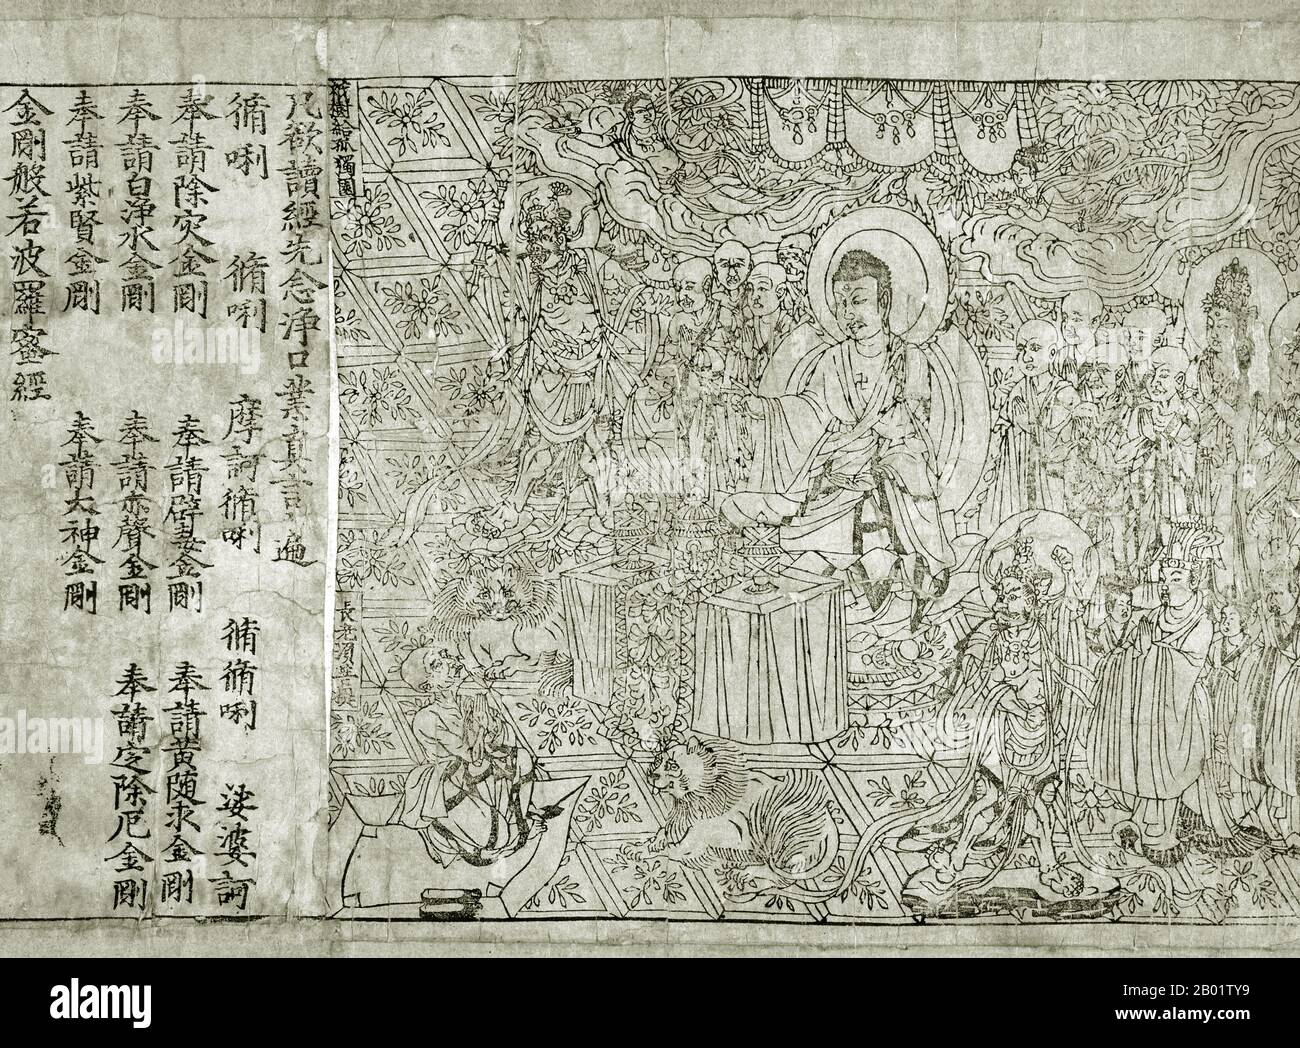 祇樹給孤獨園
長老須菩提
凡欲讀經先念浄口業真言一遍
脩唎 脩唎 摩訶脩唎 脩脩唎 娑婆訶
奉請除灾金剛 奉請辟毒金剛 奉請黃随求金剛
奉請白浄水金剛 奉請赤聲金剛 奉請定除厄金剛
奉請紫賢金剛 奉請大神金剛
金剛般若波羅蜜經
alamy
Image ID: 2B01TY9
www.alamy.com